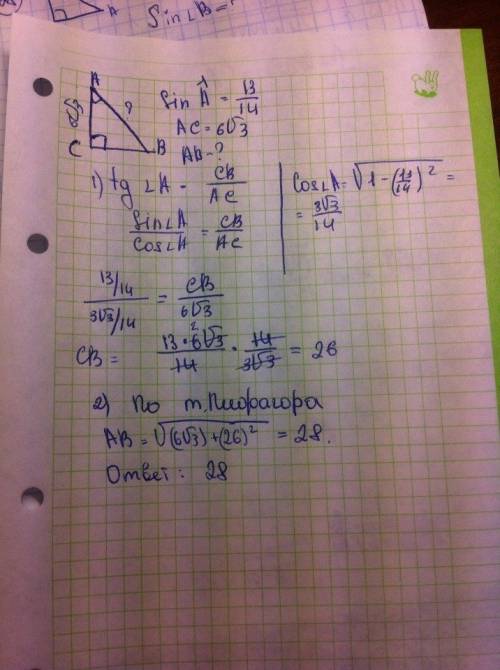 A
Sin∠B=?
A
6√3
?
C
B
Sin Â = 13/14
AC = 6√3
AB-?
1) tg ∠A = CB/AC
Sin∠A/Cos∠A = CB/AC
Cos∠A = √(1-(13/14)²) =
= 3√3/14
(13/14)/(3√3/14) = CB/6√3
2
CB = 13·6√3/14 · 14/3√3 = 26
2) По т.Пифагора
AB = √((6√3)+(26)²) = 28.
Ответ: 28